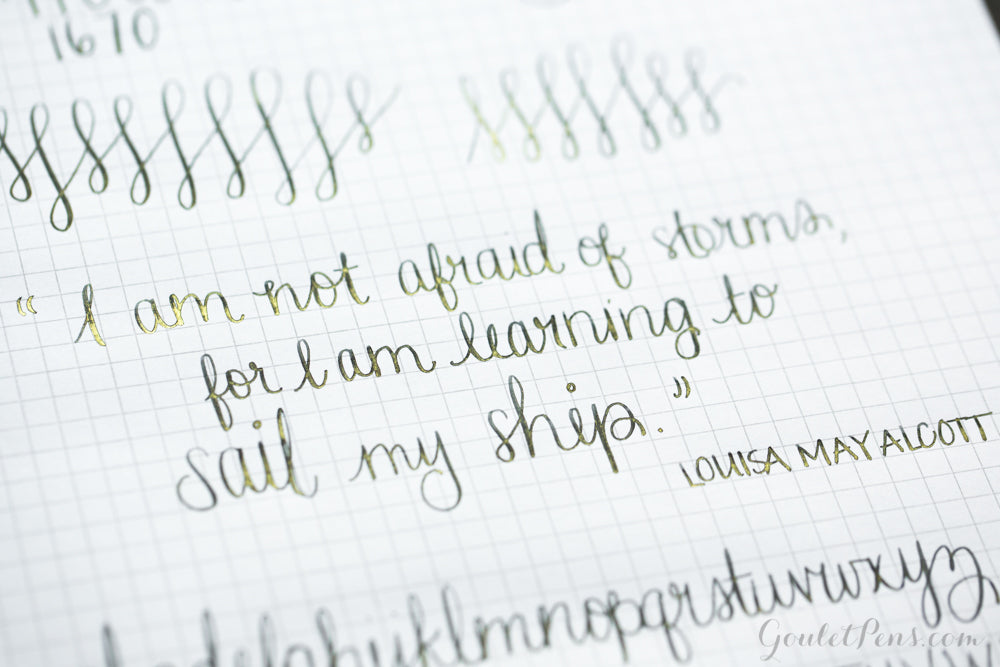 1670
“ I am not afraid of storms,
for I am learning to
sail my ship.”
LOUISA MAY ALCOTT
lmnopqrstuvwxyz
GouletPens.com